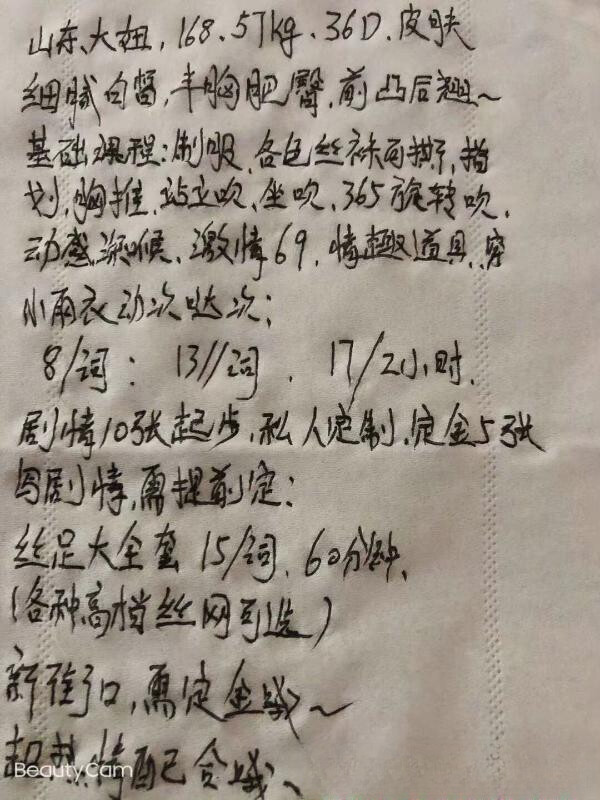 山东、大妞，168.57kg.36D.皮肤
细腻白皙，丰胸肥臀，前凸后翘~
基础课程：制服、各色丝袜可撕，指
划，胸推，站立吹、坐吹、365旋转吹，
动感深喉、激情69，情趣道具，穿
小雨衣动次哒次；
8/词： 13//词 ． 17/2小时．
剧情10张起步，私人定制，定金5张
写剧情，需提前定；
丝足大全套 15/词．60分钟、
（各种高档丝网可选）
新街口，需定金哦~
配合哦、
BeautyCam